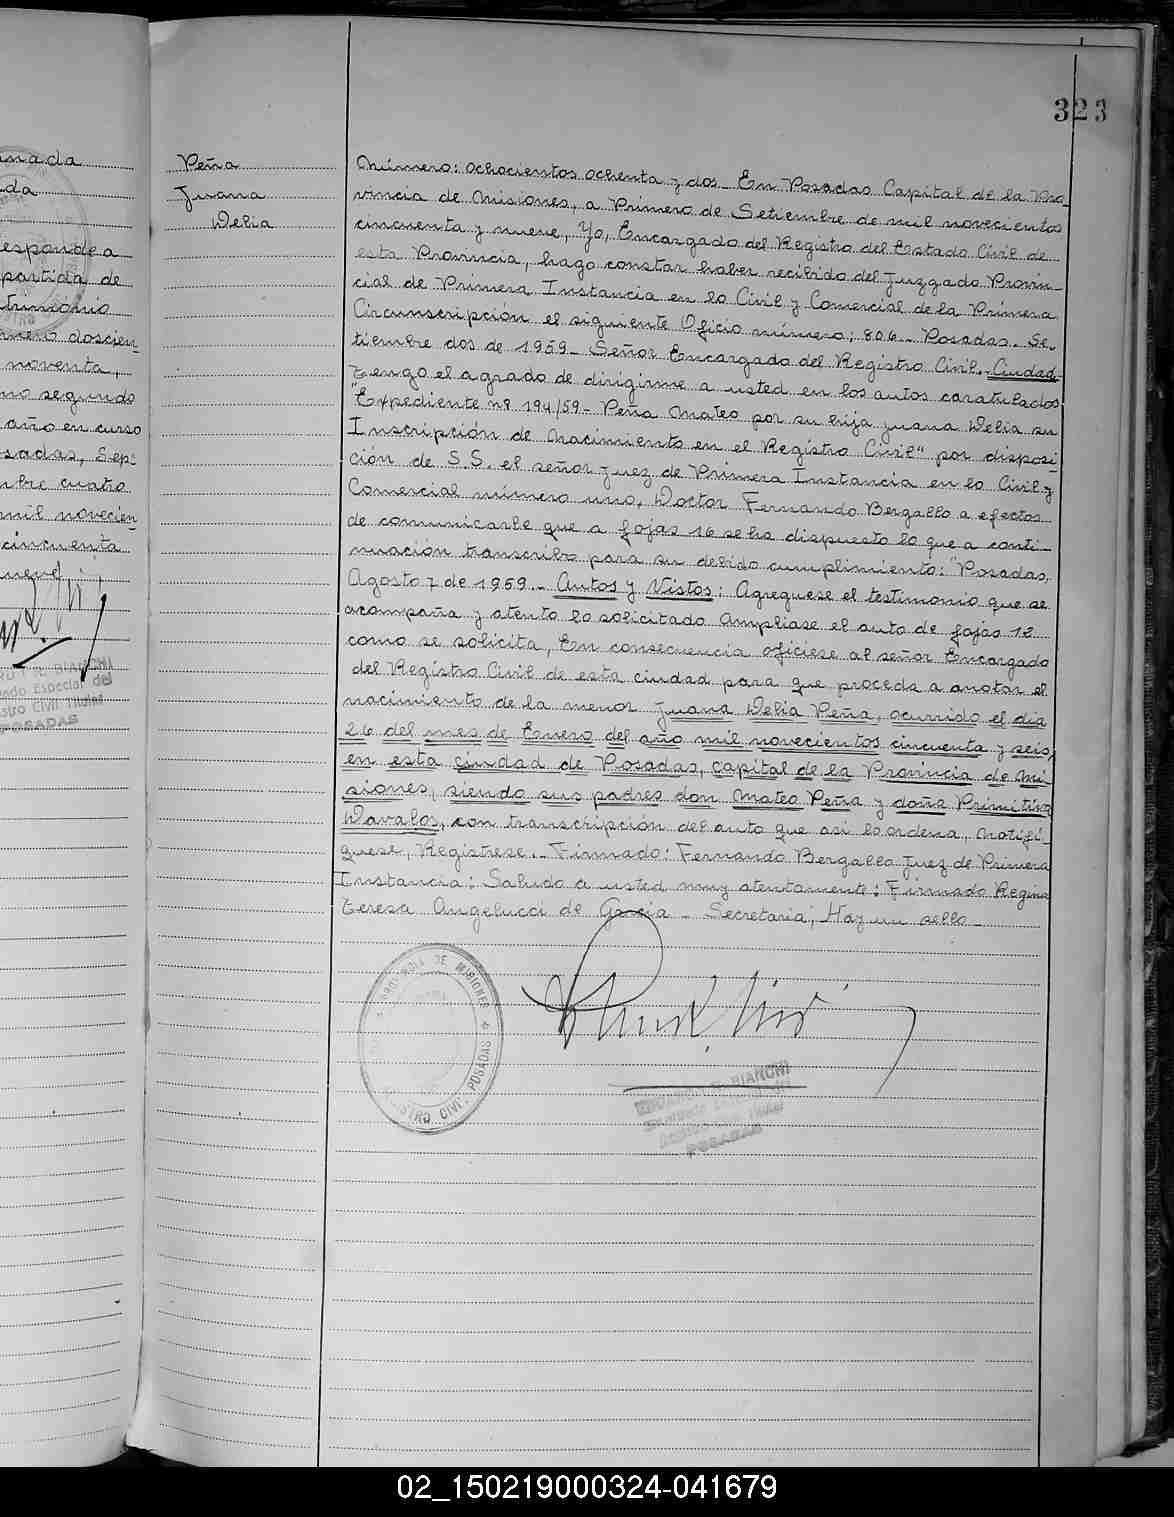 323
nada
da
esponde a
partida de
trimonio
mero doscien
noventa,
no segundo
año en curso
sadas, Sep:
mbre cuatro
mil novecien
cincuenta
BIANCHI
Especial del
stro Civil Titular
POSADAS
Peña
Juana
Delia
Número: ochocientos ochenta y dos_ En Posadas Capital de la Pro-
vincia de Misiones, a Primero de Setiembre de mil novecientos
cincuenta y nueve, Yo, Encargado del Registro del Estado Civil de
esta Provincia, hago constar haber recibido del Juzgado Provin-
cial de Primera Instancia en lo Civil y Comercial de la Primera
Circunscripción el siguiente Oficio número: 806_ Posadas. Se-
tiembre dos de 1959_ Señor Encargado del Registro Civil._ Ciudad_
Tengo el agrado de dirigirme a usted en los autos caratulados
"Expediente nº 194/59_ Peña Mateo por su hija Juana Delia su
Inscripción de Nacimiento en el Registro Civil" por disposi-
ción de S.S. el señor Juez de Primera Instancia en lo Civil y
Comercial número uno, Doctor Fernando Bergallo a efectos
de comunicarle que a fojas 16 se ha dispuesto lo que a conti-
nuación transcribo para su debido cumplimiento: "Posadas,
Agosto 7 de 1959._ Autos y Vistos: Agreguese el testimonio que se
acompaña y atento lo solicitado Ampliase el auto de fojas 12
como se solicita, En consecuencia oficiese al señor Encargado
del Registro Civil de esta ciudad para que proceda a anotar el
nacimiento de la menor Juana Delia Peña, ocurrido el día
26 del mes de Enero del año mil novecientos cincuenta y seis,
en esta ciudad de Posadas, capital de la Provincia de Mi
siones, siendo sus padres don Mateo Peña y doña Primitiva
Davalos, con transcripción del auto que asi lo ordena, Notifi-
quese, Registrese._ Firmado: Fernando Bergallo Juez de Primera
Instancia: Saludo a usted muy atentamente: Firmado Regina
Teresa Angelucci de Garcia _ Secretaria; Hay un sello_
PROVINCIA DE MISIONES
REGISTRO CIVIL POSADAS
BIANCHI
POSADAS
02_150219000324-041679